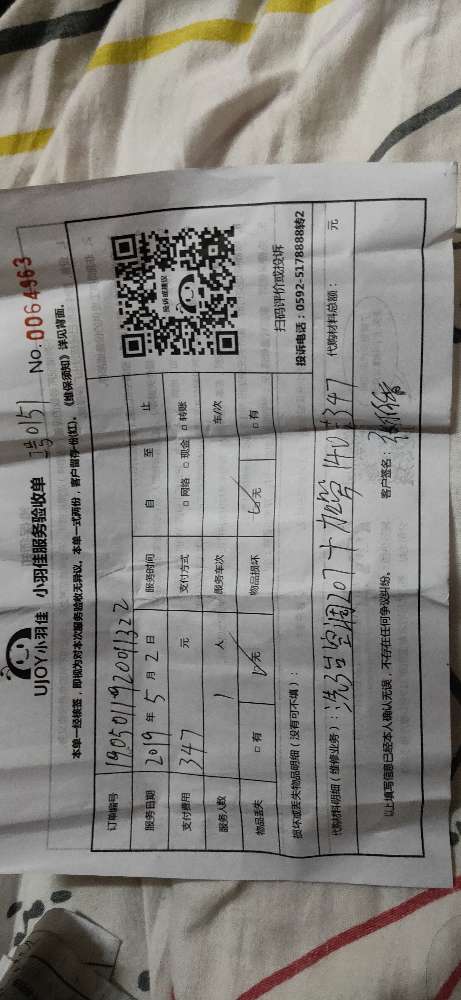 UJOY小羽佳 小羽佳服务验收单 No.0064963
本单一经核签，即视为对本次服务验收无异议，本单一式两份，客户留存一份(红)。《维保须知》详见背面。
订单编号 1905011192001322
服务日期 2019 年 5 月 2 日 服务时间 自 至 止
支付费用 347 元 支付方式 □ 网络 □ 现金 □ 转账
服务人数 1 人 服务车次 车/次
物品丢失 □ 有 □ 无 物品损坏 □ 无 □ 有
投诉或建议
扫码评价或投诉
投诉电话：0592-5178888转2
损坏或丢失物品明细（没有可不填）：
代购材料明细（维修业务）：洗3台空调207+加氟140=347 代购材料总额： 元
以上填写信息已经本人确认无误，不存在任何争议纠纷。 客户签名：